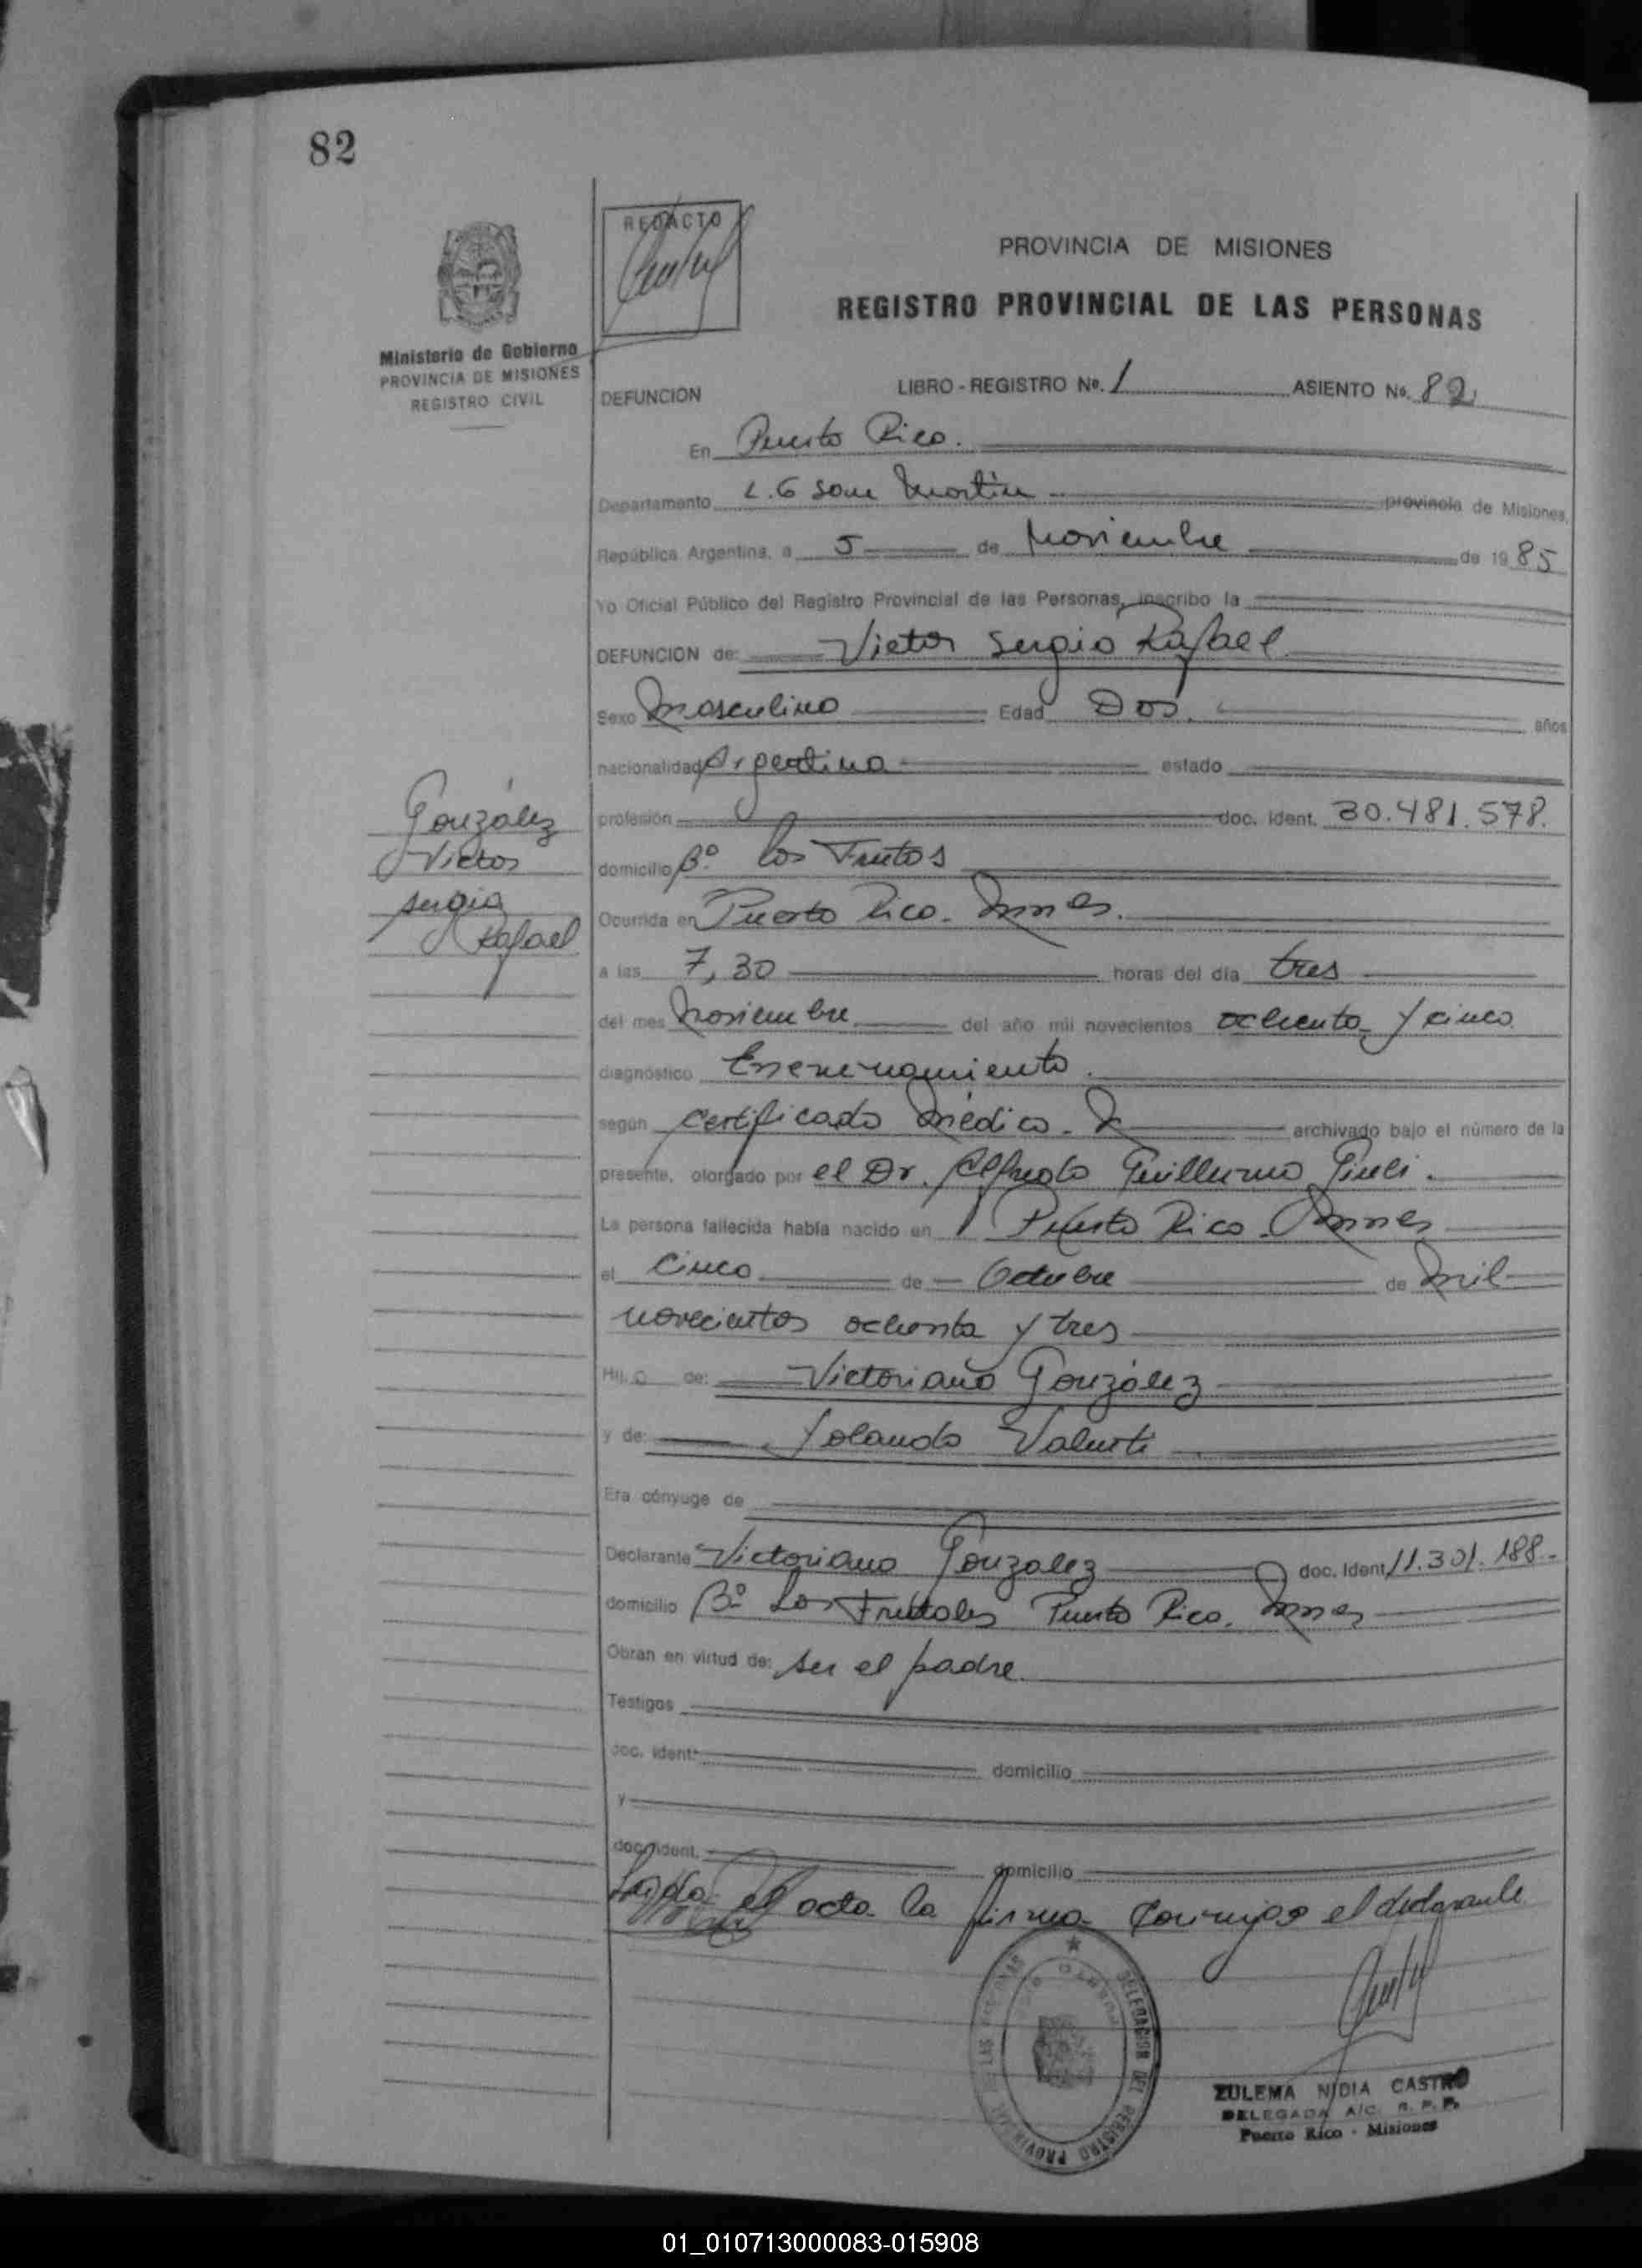 82
REDACTO
PROVINCIA DE MISIONES
REGISTRO PROVINCIAL DE LAS PERSONAS
Ministerio de Gobierno
PROVINCIA DE MISIONES
REGISTRO CIVIL
DEFUNCION
LIBRO - REGISTRO Nº. 1 ASIENTO Nº. 82
En Puerto Rico.
Departamento L.G San Martin provincia de Misiones,
República Argentina, a 5 de Noviembre de 1985
Yo Oficial Público del Registro Provincial de las Personas, inscribo la
DEFUNCION de: Victor Sergio Rafael
Sexo Masculino Edad Dos. años
nacionalidad Argentina estado
profesión doc. ident. 30.481.578.
González
Victor
Sergio
Rafael
domicilio Bº. Los Frutos
Ocurrida en Puerto Rico. Mnes.
a las 7,30 horas del día tres
del mes Noviembre del año mil novecientos ochenta y cinco
diagnóstico Envenenamiento.
según certificado Médico. archivado bajo el número de la
presente, otorgado por el Dr. Alfredo Guillermo
La persona fallecida había nacido en Puerto Rico. Mnes
el Cinco de Octubre de mil
novecientos ochenta y tres
Hij o de: Victoriano González
y de: Yolanda
Era cónyuge de
Declarante Victoriano Gonzalez doc. Ident 11.301.188.-
domicilio Bº Los Frutales Puerto Rico. Mnes
Obran en virtud de: ser el padre.
Testigos
doc. ident: domicilio
y
doc. ident. domicilio
Leída el acta la firma conmigo el declarante
DELEGACION DEL REGISTRO PROVINCIAL DE LAS PERSONAS
ZULEMA NIDIA CASTRO
DELEGADA A/C. R. P. P.
Puerto Rico - Misiones
01_010713000083-015908